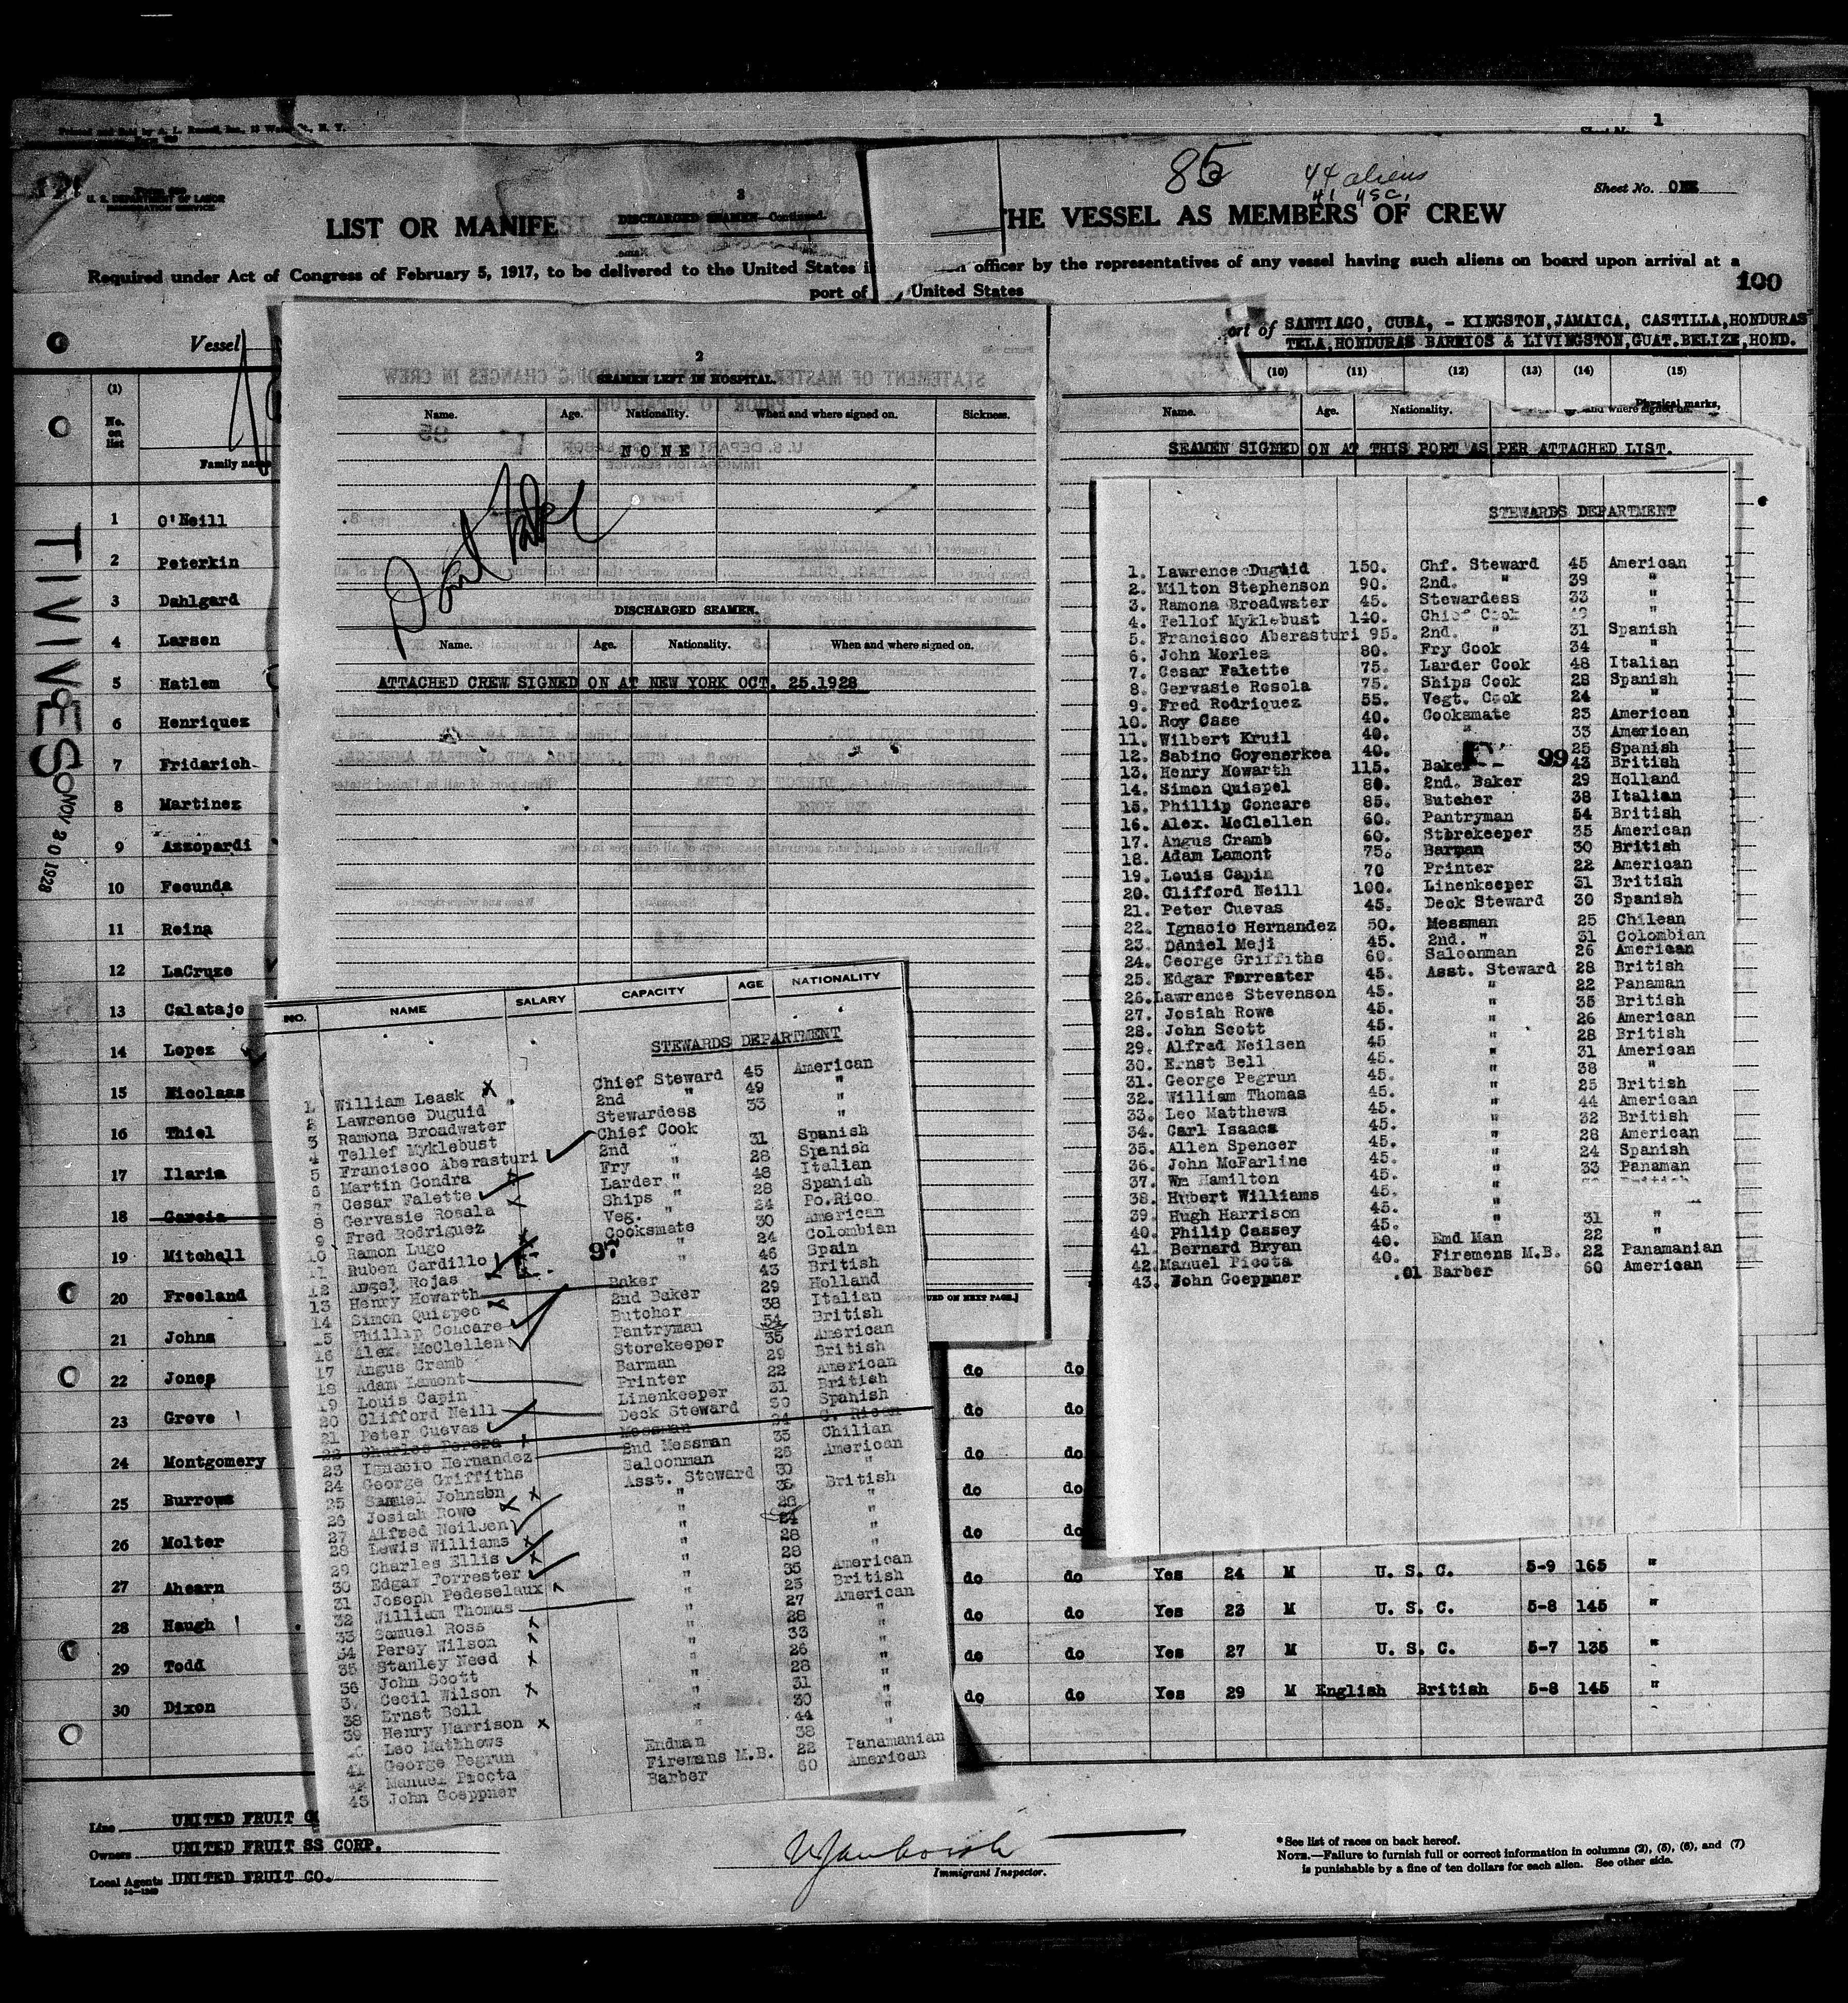 1
Sheet No. ONE
85
44 aliens
41 USC.
U. S. DEPARTMENT OF LABOR
IMMIGRATION SERVICE
LIST OR MANIFE
2
DISCHARGED SEAMEN—Continued.
THE VESSEL AS MEMBERS OF CREW
Required under Act of Congress of February 5, 1917, to be delivered to the United States i
officer by the representatives of any vessel having such aliens on board upon arrival at a
port of
United States
100
Vessel
ort of SANTIAGO, CUBA, - KINGSTON,JAMAICA, CASTILLA,HONDURAS
TELA,HONDURAS BARRIOS & LIVINGSTON,GUAT.BELIZE,HOND.
(1) (10) (11) (12) (13) (14) (15)
No. on list
Family name
Physical marks,
TIVIVES
NOV 20 1928
1 O'Neill
2 Peterkin
3 Dahlgard
4 Larsen
5 Hatlem
6 Henriquez
7 Fridarich
8 Martinez
9 Azzopardi
10 Fecunda
11 Reina
12 LaCruze
13 Calatajo
14 Lopez
15 Nicolaas
16 Thiel
17 Ilaria
18 Garcia
19 Mitchell
20 Freeland
21 Johns
22 Jones
23 Grove
24 Montgomery
25 Burrows
26 Molter
27 Ahearn
28 Haugh
29 Todd
30 Dixon
2
SEAMEN LEFT IN HOSPITAL.
Name. Age. Nationality. When and where signed on. Sickness.
NONE
DISCHARGED SEAMEN.
Name. Age. Nationality. When and where signed on.
ATTACHED CREW SIGNED ON AT NEW YORK OCT. 25.1928
NO. NAME SALARY CAPACITY AGE NATIONALITY
STEWARDS DEPARTMENT
1 William Leask Chief Steward 45 American
2 Lawrence Duguid 2nd " 49 "
3 Ramona Broadwater Stewardess 33 "
4 Tellef Myklebust Chief Cook "
5 Francisco Aberasturi 2nd " 31 Spanish
6 Martin Gondra Fry " 28 Spanish
7 Cesar Falette Larder " 48 Italian
8 Gervasie Rosala Ships " 28 Spanish
9 Fred Rodriguez Veg. " 24 Po.Rico
10 Ramon Lugo Cooksmate 30 American
11 Ruben Cardillo " 24 Colombian
12 Angel Rojas " 46 Spain
13 Henry Howarth Baker 43 British
14 Simon Quispec 2nd Baker 29 Holland
15 Phillip Concare Butcher 38 Italian
16 Alex. McClellen Pantryman 54 British
17 Angus Cramb Storekeeper 35 American
18 Adam Lamont Barman 29 British
19 Louis Capin Printer 22 American
20 Clifford Neill Linenkeeper 31 British
21 Peter Cuevas Deck Steward 30 Spanish
22 Charles Perera Messman 24 C. Rican
23 Ignacio Hernandez 2nd Messman 35 Chilian
24 George Griffiths Saloonman 26 American
25 Samuel Johnson Asst. Steward 30 "
26 Josiah Rowe " 35 British
27 Alfred Neilsen " 28 "
28 Lewis Williams " 24 "
29 Charles Ellis " 28 "
30 Edgar Forrester " 28 "
31 Joseph Pedeselaux " 35 American
32 William Thomas " 25 British
33 Samuel Ross " 27 American
34 Percy Wilson " 28 "
35 Stanley Need " 33 "
36 John Scott " 26 "
37 Cecil Wilson " 28 "
38 Ernst Bell " 31 "
39 Henry Harrison " 30 "
40 Leo Matthews " 44 "
41 George Pegrun Endman 38 "
42 Manuel Picota Firemans M.B. 22 Panamanian
43 John Goeppner Barber 60 American
Name. Age. Nationality.
SEAMEN SIGNED ON AT THIS PORT AS PER ATTACHED LIST.
STEWARDS DEPARTMENT
1. Lawrence Duguid 150. Chf. Steward 45 American
2. Milton Stephenson 90. 2nd. " 39 "
3. Ramona Broadwater 45. Stewardess 33 "
4. Tellof Myklebust 140. Chief Cook "
5. Francisco Aberasturi 95. 2nd. " 31 Spanish
6. John Merles 80. Fry Cook 34 "
7. Cesar Falette 75. Larder Cook 48 Italian
8. Gervasie Rosola 75. Ships Cook 28 Spanish
9. Fred Rodriquez 55. Vegt. Cook 24 "
10. Roy Case 40. Cooksmate 23 American
11. Wilbert Kruil 40. " 33 American
12. Sabino Goyenerkea 40. 25 Spanish
99
13. Henry Howarth 115. Baker 43 British
14. Simon Quispel 80. 2nd. Baker 29 Holland
15. Phillip Concare 85. Butcher 38 Italian
16. Alex. McClellen 60. Pantryman 54 British
17. Angus Cramb 60. Storekeeper 35 American
18. Adam Lamont 75. Barman 30 British
19. Louis Capin 70 Printer 22 American
20. Clifford Neill 100. Linenkeeper 31 British
21. Peter Cuevas 45. Deck Steward 30 Spanish
22. Ignacio Hernandez 50. Messman 25 Chilean
23. Daniel Meji 45. 2nd. " 31 Colombian
24. George Griffiths 60. Saloonman 26 American
25. Edgar Forrester 45. Asst. Steward 28 British
26. Lawrence Stevenson 45. " 22 Panaman
27. Josiah Rowe 45. " 35 British
28. John Scott 45. " 26 American
29. Alfred Neilsen 45 " 28 British
30. Ernst Bell 45. " 31 American
31. George Pegrun 45. " 38 "
32. William Thomas 45. " 25 British
33. Leo Matthews 45. " 44 American
34. Carl Isaacs 45. " 32 British
35. Allen Spencer 45. " 28 American
36. John McFarline 45. " 24 Spanish
37. Wm Hamilton 45. " 33 Panaman
38. Hubert Williams 45. "
39. Hugh Harrison 45. " 31 "
40. Philip Cassey 45. 22 "
41. Bernard Bryan 40. End Man 22 "
42. Manuel Picota 40. Firemens M.B. 22 Panamanian
43. John Goeppner .01 Barber 60 American
do do
do do
do do
do do
do do
do do Yes 24 M U. S. C. 5-9 165 "
do do Yes 23 M U. S. C. 5-8 145 "
do do Yes 27 M U. S. C. 5-7 135 "
do do Yes 29 M English British 5-8 145 "
Line UNITED FRUIT C
Owners UNITED FRUIT SS CORP.
Local Agents UNITED FRUIT CO.
Immigrant Inspector.
*See list of races on back hereof.
NOTE.—Failure to furnish full or correct information in columns (2), (5), (6), and (7)
is punishable by a fine of ten dollars for each alien. See other side.